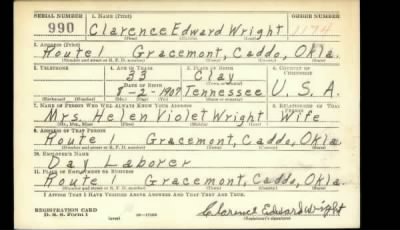 SERIAL NUMBER 1. NAME (Print) ORDER NUMBER
990 Clarence Edward Wright 1174
(First) (Middle) (Last)
2. ADDRESS (Print)
Route 1 Gracemont, Caddo, Okla.
(Number and street or R. F. D. number) (Town) (County) (State)
3. TELEPHONE 4. AGE IN YEARS 5. PLACE OF BIRTH 6. COUNTRY OF CITIZENSHIP
33 Clay
DATE OF BIRTH (Town or county)
8-2-1907 Tennessee U. S. A.
(Exchange) (Number) (Mo.) (Day) (Yr.) (State or country)
7. NAME OF PERSON WHO WILL ALWAYS KNOW YOUR ADDRESS 8. RELATIONSHIP OF THAT PERSON
Mrs. Helen Violet Wright Wife
(Mr., Mrs., Miss) (First) (Middle) (Last)
9. ADDRESS OF THAT PERSON
Route 1 Gracemont, Caddo, Okla.
(Number and street or R. F. D. number) (Town) (County) (State)
10. EMPLOYER'S NAME
Day Laborer
11. PLACE OF EMPLOYMENT OR BUSINESS
Route 1 Gracemont, Caddo, Okla.
(Number and street or R. F. D. number) (Town) (County) (State)
I AFFIRM THAT I HAVE VERIFIED ABOVE ANSWERS AND THAT THEY ARE TRUE.
REGISTRATION CARD
D. S. S. Form 1 (over) Clarence Edward Wright
(Registrant's signature)